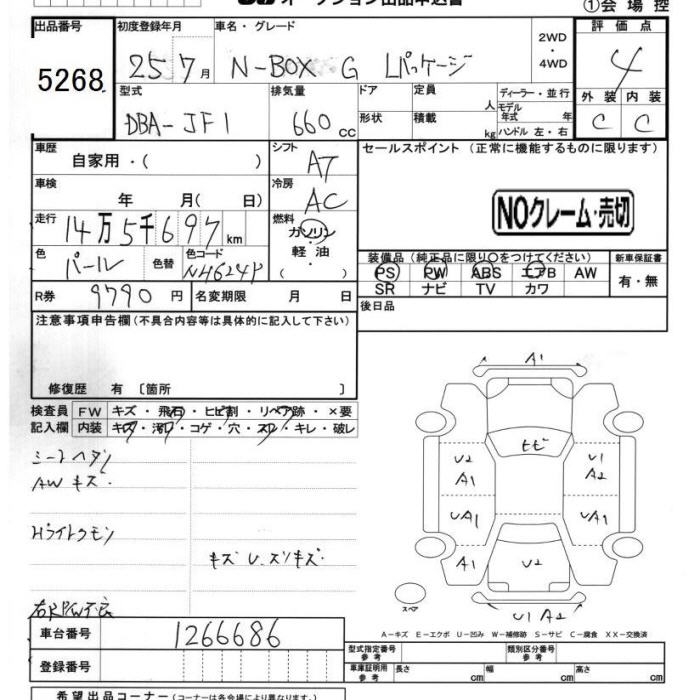 オークション出品申込書
①会場控
出品番号 初度登録年月 車名・グレード 評価点
5268 25 7月 N-BOX G Lパッケージ 2WD・4WD 4
型式 排気量 ドア 定員 人 ディーラー・並行 外装 内装
DBA-JF1 660cc 形状 積載 kg モデル年式 年 ハンドル 左・右 C C
車歴 自家用・( ) シフト AT セールスポイント (正常に機能するものに限ります)
車検 年 月( 日) 冷房 AC
NOクレーム・売切
走行 14万5千697km 燃料 ガソリン・軽油・( )
色 パール 色替 色コード NH624P
装備品(純正品に限り○をつけてください) 新車保証書
PS PW ABS エアB AW 有・無
SR ナビ TV カワ
R券 9790円 名変期限 月 日 後日品
注意事項申告欄(不具合内容等は具体的に記入して下さい)
修復歴 有〔箇所 〕
検査員記入欄 FW キズ・飛石・ヒビ割・リペア跡・×要
内装 キズ・汚れ・コゲ・穴・スレ・キレ・破レ
シートヘタリ
AWキズ.
Hライトクモリ
キズ U.スリキズ.
右RP/W不良
A1
ヒビ
U2 A1
U A2
UA1
UA1
A1
U2
U1 A2
スペア
A-キズ E-エクボ U-凹み W-補修跡 S-サビ C-腐食 XX-交換済
車台番号 1266686
型式指定番号 参考 類別区分番号 参考
登録番号
車庫証明用 参考 長さ cm 幅 cm 高さ cm
希望出品コーナー(コーナーは各会場により異なります)